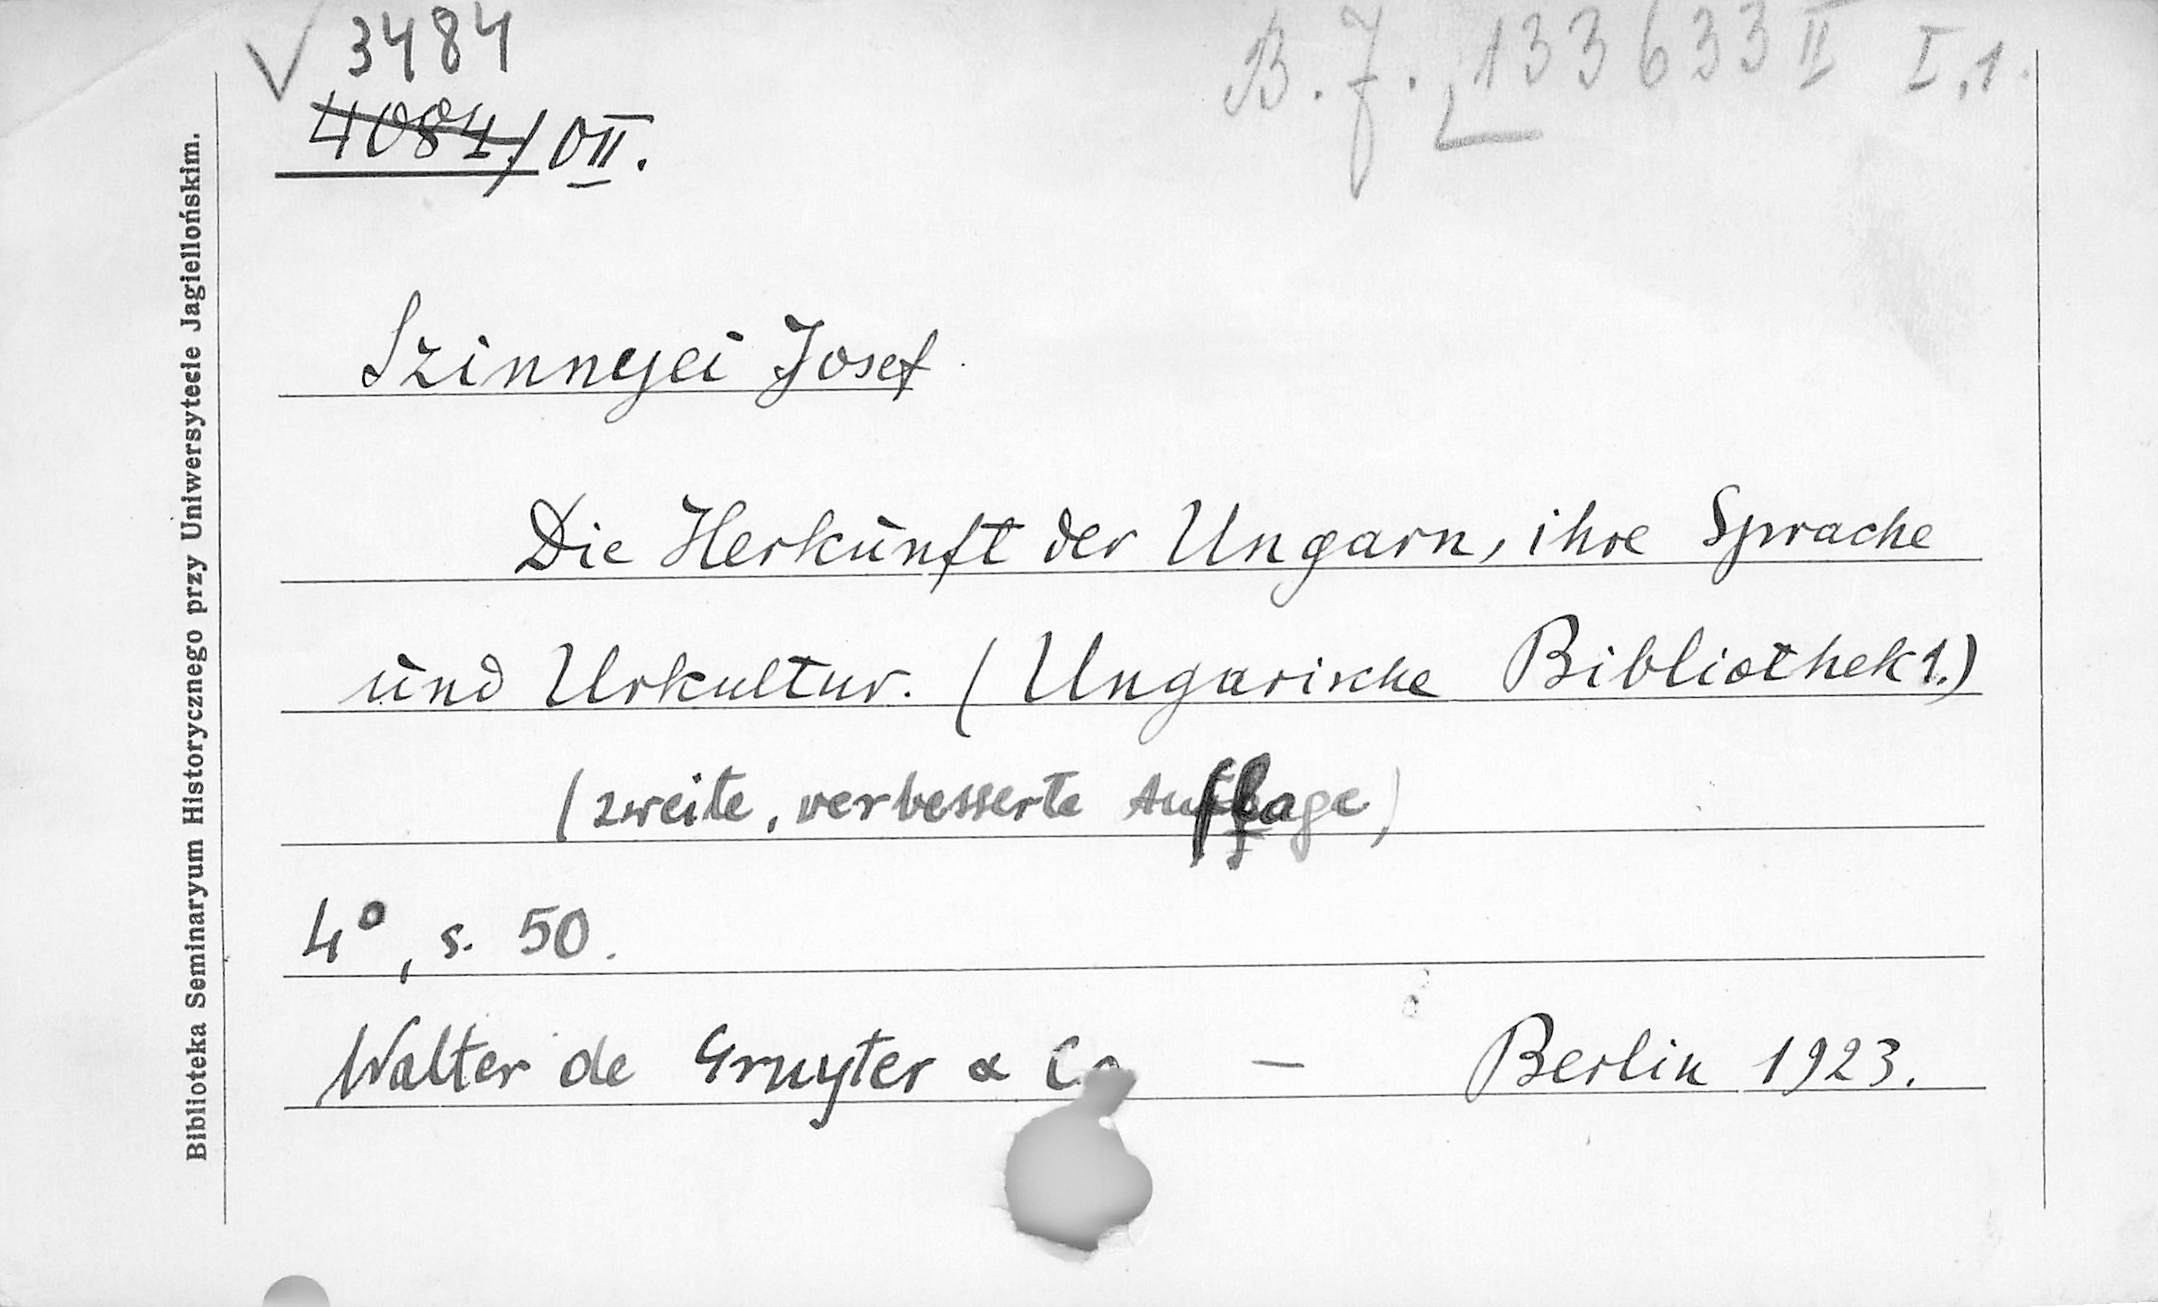 √ 3484
4084/OII.
B. J. 133633 II I.1.
Szinnyei Josef
Die Herkunft der Ungarn, ihre Sprache
und Urkultur. (Ungarische Bibliothek 1.)
(zweite, verbesserte Auflage)
4°, s. 50.
Walter de Gruyter & Co — Berlin 1923.
Biblioteka Seminaryum Historycznego przy Uniwersytecie Jagiellońskim.